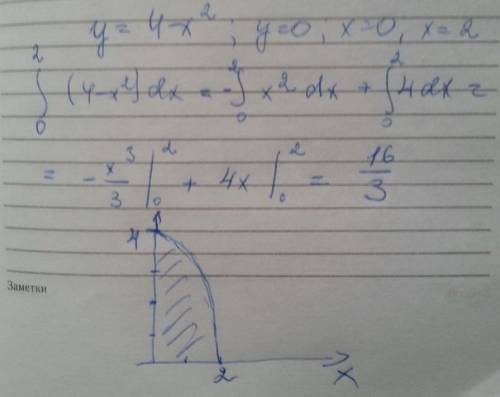 y = 4-x²; y=0; x=0, x=2
∫₀² (4-x²) dx = -∫₀² x² dx + ∫₀² 4dx =
= -x³/3 |₀² + 4x |₀² = 16/3
4
Заметки
2
X